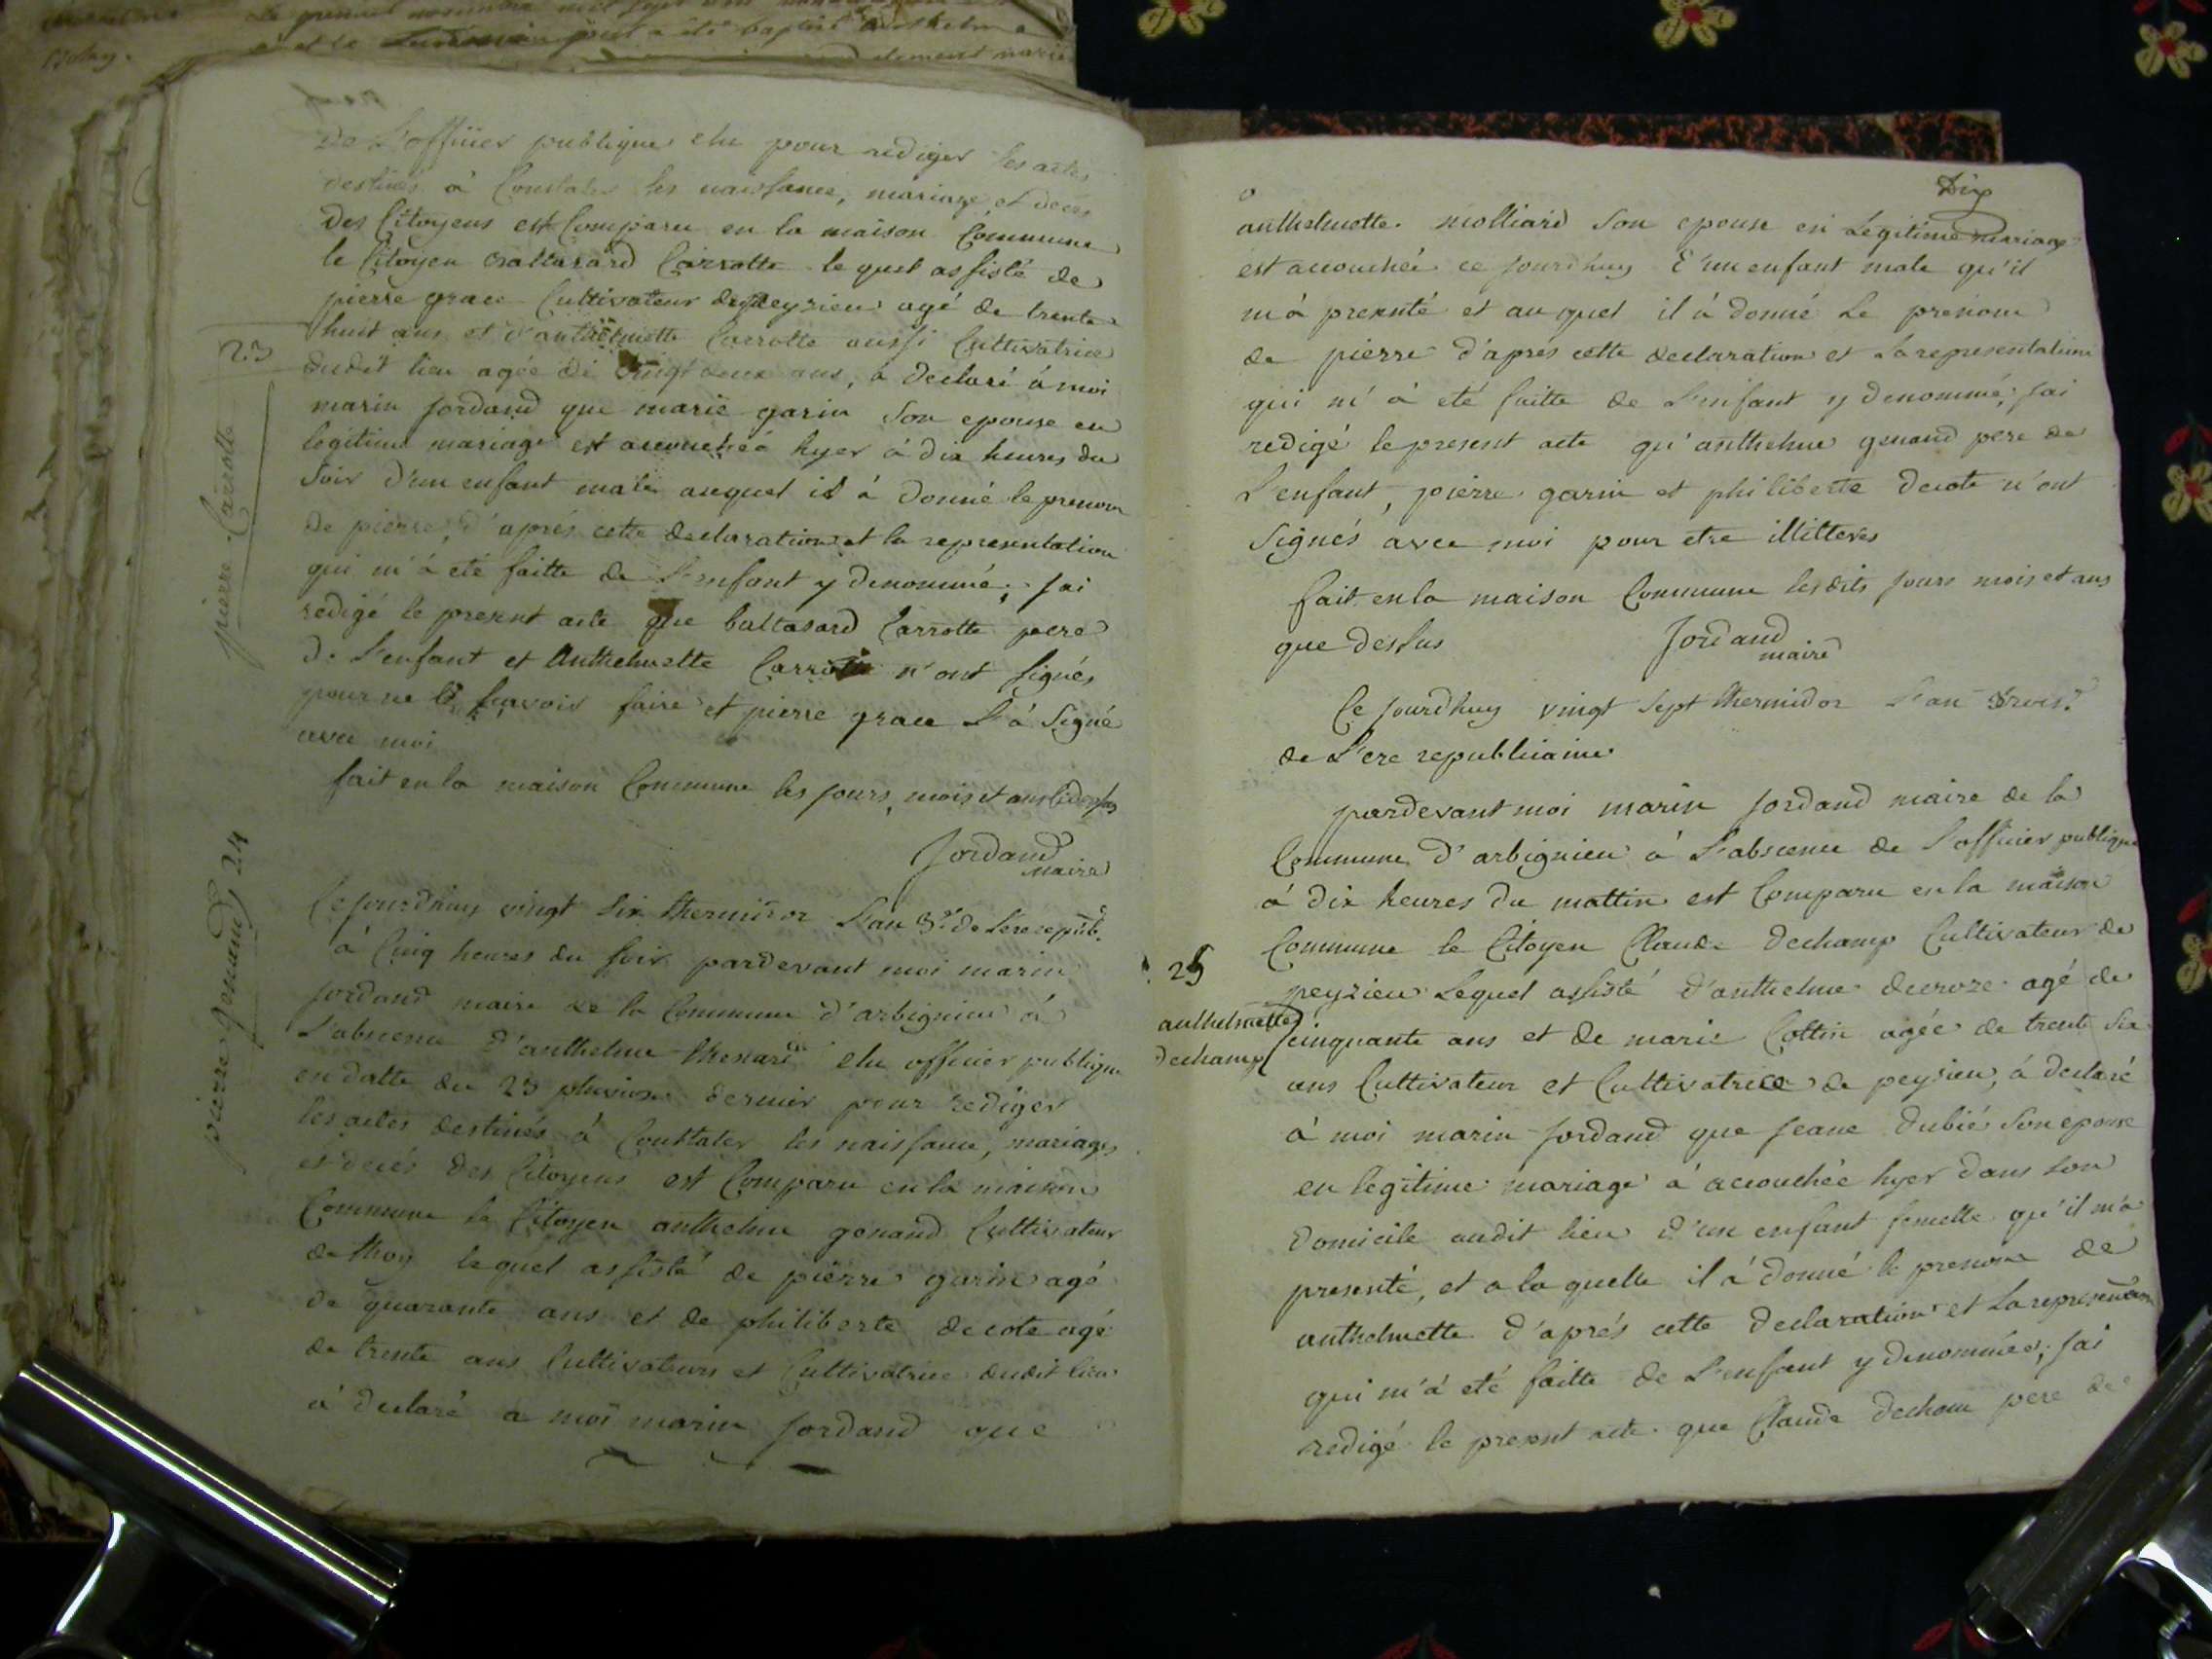 De L'officier publique elu pour rediger les actes
destinés à Constater les naissance, mariage et decés
Des Citoyens est Comparu en la maison Commune
le Citoyen Baltasard Carrotte lequel assisté de
pierre grace Cultivateur de peyzieu agé de trente
huit ans et d'anthelmette Carrotte aussi Cultivatrice
23
dudit lieu agée de vingt deux ans, à declaré à moi
marin Jordand que marie garin Son epouse en
legitime mariage est accouchéé hyer à dix heures du
Soir d'un enfant male auquel il à donné le prenom
De pierre, d'aprés cette declaration et la representation
qui m'à eté faitte de L'enfant y denommé; Jai
redigé le present acte que baltasard Carrotte pere
De L'enfant et Anthelmette Carrotte n'ont signés
pour ne le sçavoir faire et pierre grace L'à Signé
avec moi
pierre Carrotte
fait en la maison Commune les jours, mois et ans
Jordand
maire
pierre genand 24
Ce Jourdhuy vingt Six thermidor L'an 3e de L'ere repub.
à Cinq heures du soir pardevant moi marin
Jordand maire de la Commune d'arbignieu à
L'absence d'anthelme elu officier publique
en datte du 23 pluviose dernier pour rediger
les actes destinés à Constater les naissance, mariages
et decés Des Citoyens est Comparu en la maison
Commune le Citoyen anthelme genand Cultivateur
de thoy lequel assisté de pierre garin agé
de quarante ans et de philiberte decote agé
de trente ans Cultivateurs et Cultivatrice dudit lieu
à declaré a moi marin Jordand que
Dix
anthelmette molliard Son epouse en Legitime mariage
est accouchéé ce Jourdhuy d'un enfant male qu'il
m'à presenté et auquel il à donné Le prenom
de pierre d'aprés cette declaration et La representation
qui m'à eté faitte de L'enfant y denommé; Jai
redigé le present acte qu'anthelme genand pere de
L'enfant, pierre garin et philiberte decote n'ont
Signés avec moi pour etre illitterés
fait en la maison Commune lesdits Jours mois et ans
que dessus
Jordand
maire
Ce Jourdhuy vingt Sept thermidor L'an trois.
de L'ere republicaine
pardevant moi marin Jordand maire de la
Commune d'arbignieu à L'absence de L'officier publique
à dix heures du mattin est Comparu en la maison
Commune le Citoyen Claude dechamp Cultivateur de
25
anthelmette
dechamp
peyzieu Lequel assisté d'anthelme decroze agé de
cinquante ans et de marie Cottin agée de trente Six
ans Cultivateur et Cultivatrice de peyzieu, à declaré
à moi marin Jordand que Jeane dubié Son epouse
en legitime mariage à accouchée hyer dans son
Domicile audit lieu d'un enfant femelle qu'il m'à
presenté, et a la quelle il à donné le prenom de
anthelmette d'aprés cette declaration et La representation
qui m'à eté faitte de L'enfant y denommée; Jai
redigé le present acte que Claude pere de